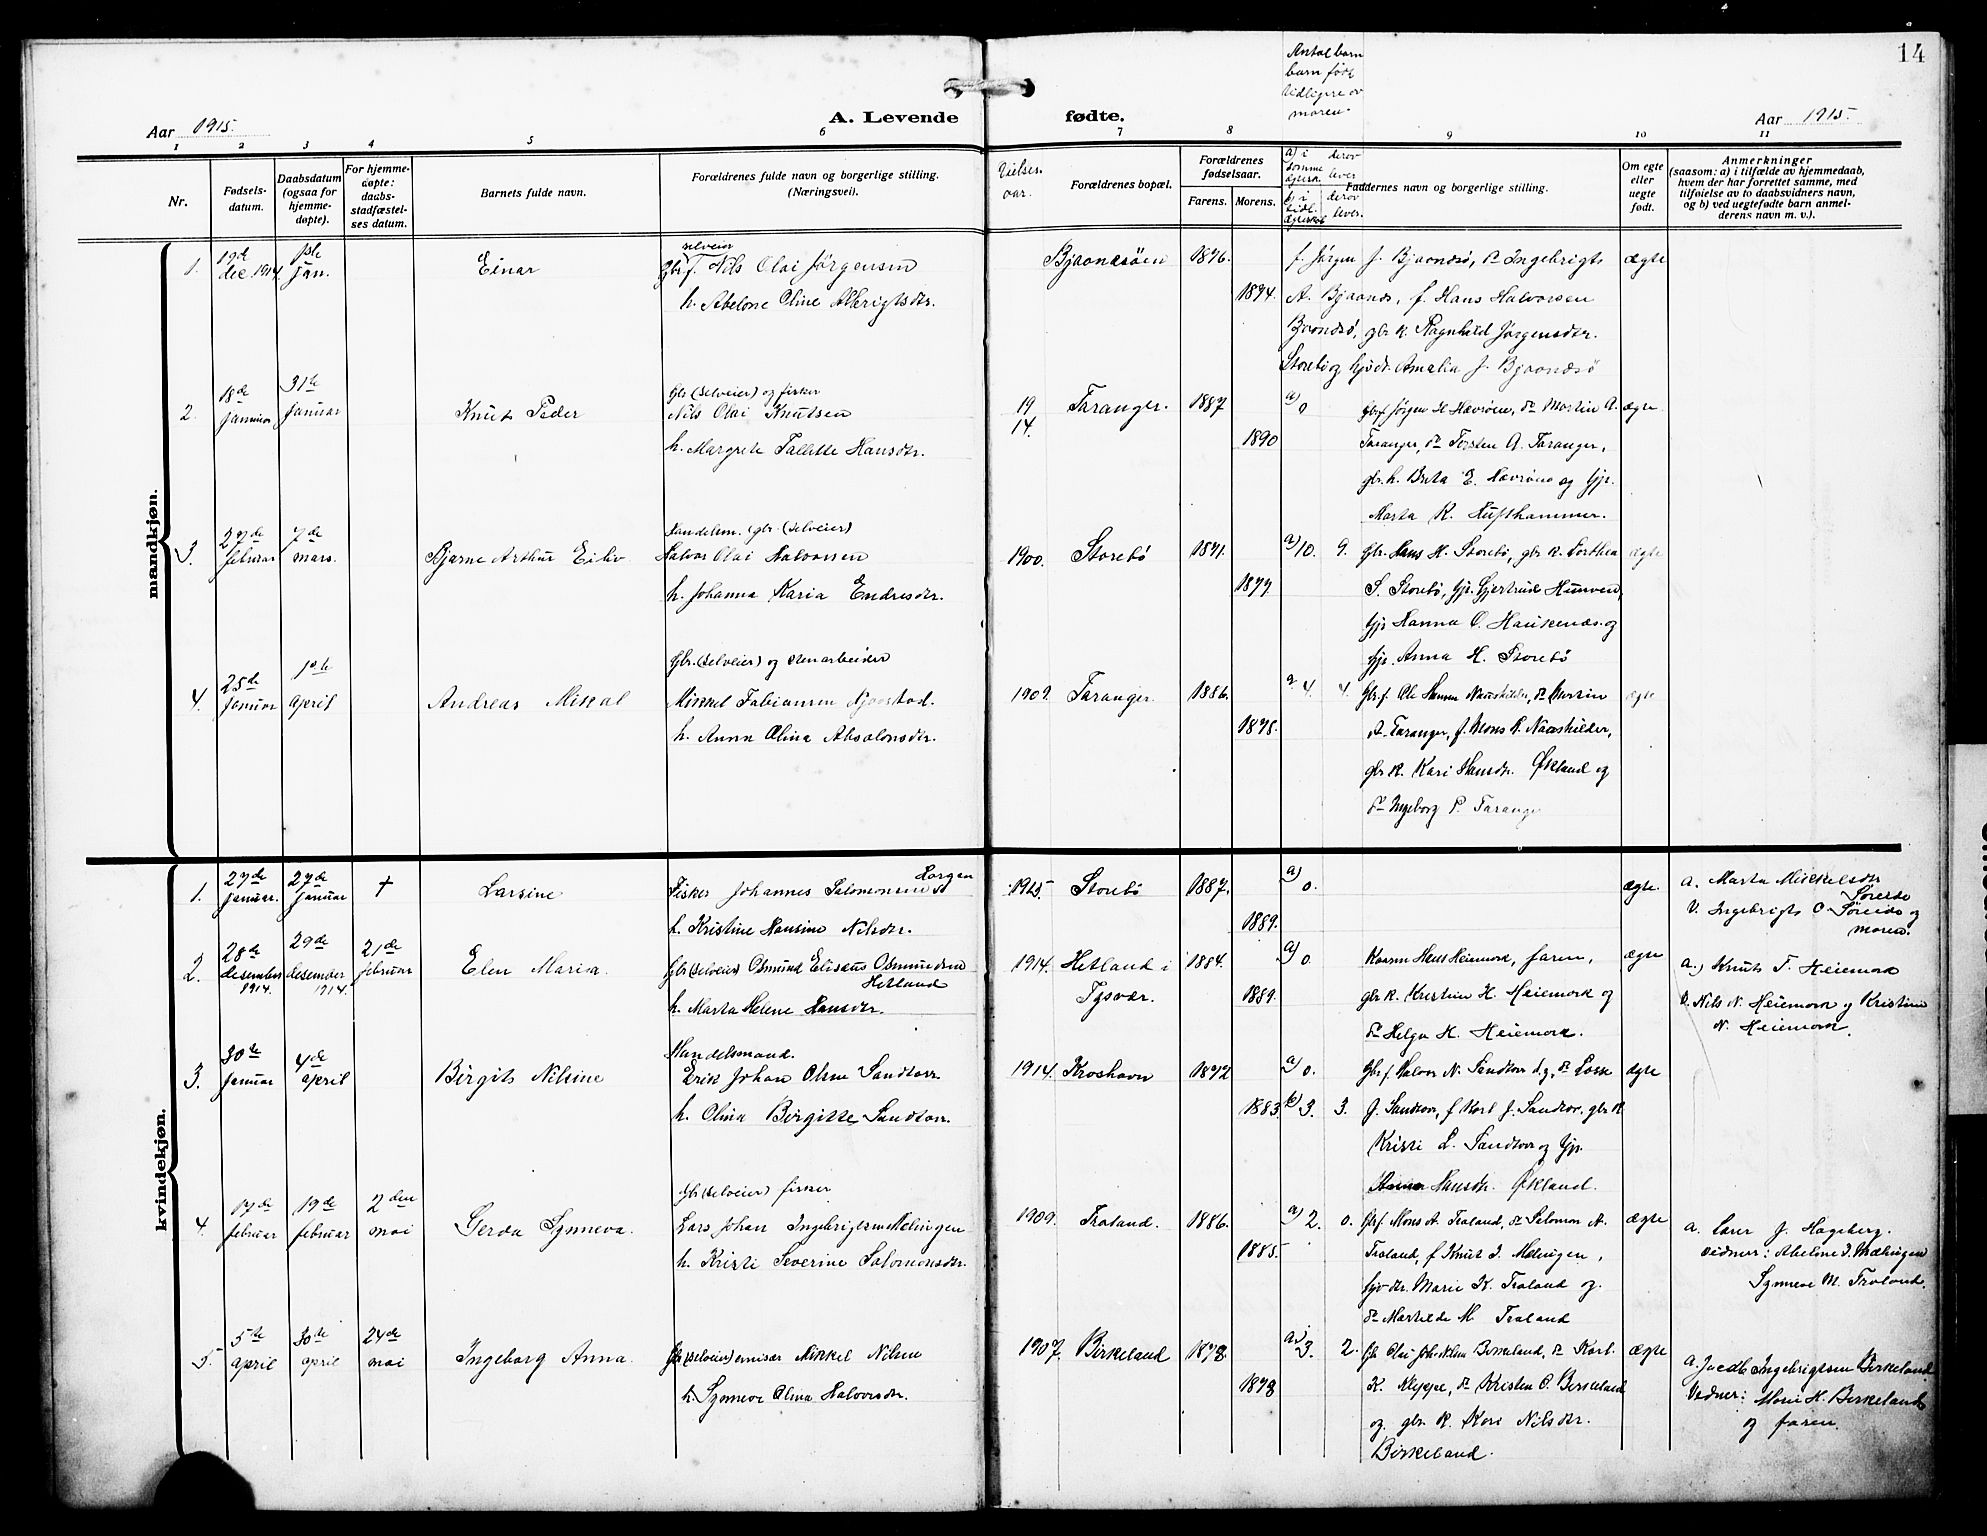 14
Antal barn
barn født
tidligere av
moren.
Aar 1915.
A. Levende
fødte.
Aar 1915.
1 2 3 4 5 6 7 8 9 10 11
Nr.
Fødsels-
datum.
Daabsdatum
(ogsaa for
hjemme-
døpte).
For hjemme-
døpte:
daabs-
stadfæstel-
ses datum.
Barnets fulde navn.
Forældrenes fulde navn og borgerlige stilling.
(Næringsvei).
Vielses-
aar.
Forældrenes bopæl.
Forældrenes
fødselsaar.
Farens. Morens.
a) i derav
samme lever
b) i derav
tidl. lever.
Faddernes navn og borgerlige stilling.
Om egte
eller
uegte
født.
Anmerkninger
(saasom: a) i tilfælde av hjemmedaab,
hvem der har forrettet samme, med
tilføielse av to daabsvidners navn,
og b) ved uegtefødte barn anmel-
derens navn m. v.).
mandkjøn.
1. 19de dec. 1914. 1ste jan. Einar
selveier
gbr. f. Nils Olai Jørgensen
h. Abelone Oline Albrigtsdtr.
Bjaanesøen 1876. 1894.
f. Jørgen J. Bjaanesø, Ingebrigt
A. Bjaanes, f. Hans Halvorsen
Bjaanesø, gbr. k. Ragnhild Jørgensdtr.
Storebø og Amalia J. Bjaanesø
ægte
2. 18de januar 31te januar Knut Peder
Gbr. (selveier) og fisker
Nils Olai Knutsen
h. Margrete Tallette Hansdtr.
19
14. Taranger. 1887 1890 a) 0
Gbr f Jørgen H Hevrøen, Martin A.
Taranger, Torsten A. Taranger,
gbr. k. Brita E. Hevrøen og pp.
Marta K. Hufthammer.
ægte
3. 27de februar 7de mars Bjarne Arthur Eiliv
Handelsm. gbr. (selveier)
Halvor Olai Halvorsen
h. Johanna Karia Endresdtr.
1900. Storebø 1871. 1877. a) 10. 9.
Gbr. Hans H. Storebø, gbr. k. Dorthea
S. Storebø, pp. Gjertrud
pp Hanna O. Haukenæs og
pp. Anna H. Storebø
ægte
4. 25de januar 1ste april Andreas Mikal
Gbr. (selveier) og stenarbeider
Mikkel Fabiansen
h. Anna Olina Absalonsdtr.
1907. Taranger. 1886. 1878. a. 4. 4.
Gbr. f. Ole Hansen Nausthiller, Martin
A. Taranger, f. Mons P. Nausthiller,
gbr. k. Kari Hansdtr. Økland og
Ingeborg P. Taranger
ægte
kvindekjøn.
1. 27de januar. 27de januar † Larsine
Fisker Johannes Salomonsen
h. Kristine Hansine Nilsdtr.
Storebø 1887. 1889. a) 0. ægte.
a. Marta Mikkelsdtr
Søreide
V. Ingebrigt O. Søreide og
moren.
2. 28de desember 1914. 29de desember 1914. 21de februar Elen Maria.
Gbr. (selveier) Osmund Elisæus Osmundsen
Hetland
h. Marta Helene Hansdtr.
1914. Hetland i
Tysvær. 1884. 1889. a) 0.
Hans Heiemark, faren,
gbr. k. Kristine H. Heiemark og
Helga H. Heiemark.
ægte
a.) Knut T. Heiemark
V. Nils N. Heiemark og Kristine
N. Heiemark.
3. 30te januar 4de april Birgit Nilsine
Handelsmand.
Erik Johan Olsen Sandtorv
h. Olina Birgitte Sandtorv.
1914. Kroshavn 1872 1883. a) 0. b) 3. 3.
Gbr. f. Halvor N. Sandtorv d. y., Lasse
J. Sandtorv, f Karl J. Sandtorv, gbr k
Kristi L. Sandtorv og pp.
Hansdtr. Økland.
ægte
4. 17de februar 19de februar 2den mai Gerda Synneva.
Gbr (selveier) fisker
Lars Johan Ingebrigtsen Mælingen
h. Kristi Severine Salomonsdtr.
1909. Troland. 1886. 1885. a) 2. 0.
Gbr f Mons A. Troland, Salomon A.
Troland, f Knut I. Mælingen,
Marie K. Troland og
Martilde M. Troland
ægte
a. Lærer J. Hageberg.
vidner: Abeline I. Mælingen
Synneve M. Troland.
5. 5te april 30te april 24de mai Ingeborg Anna.
Gbr (selveier) Mikkel Nilsen
h. Synneve Olina Halvorsdtr.
1907. Birkeland 1878. 1878 a) 3. 2.
Gbr Olai Johs. Nilsen Birkeland, Karl
K. Kleppe, Kristen O. Birkeland
og gbr. k. Kari Nilsdtr.
Birkeland.
ægte
a. Jacob Ingebrigtsen Birkeland
Vidner: Marie H. Birkeland
og faren.